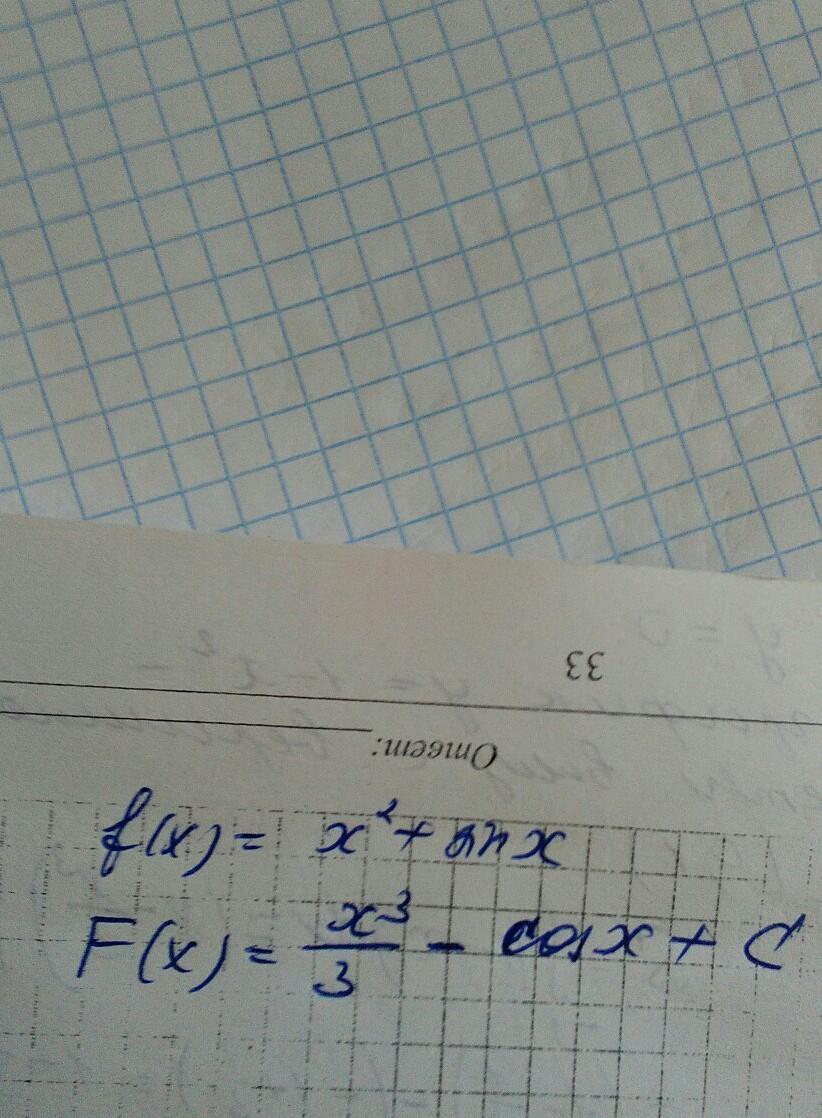 33
Ответ:
f(x) = x² + sin x
F(x) = x³/3 - cos x + C